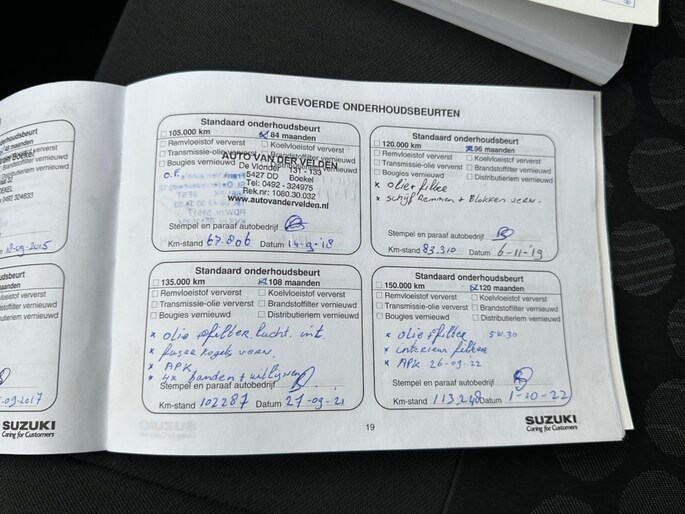 UITGEVOERDE ONDERHOUDSBEURTEN
Standaard onderhoudsbeurt
105.000 km 84 maanden
Remvloeistof ververst Koelvloeistof ververst
Transmissie-olie ververst Brandstoffilter vernieuwd
Bougies vernieuwd Distributieriem vernieuwd
AUTO VAN DER VELDEN
De Vlonder 131 - 133
5427 DD Boekel
Tel: 0492 - 324975
Rek.nr: 1080.30.032
www.autovandervelden.nl
O.F.
Stempel en paraaf autobedrijf
Km-stand 67.806 Datum 14-9-'18
Standaard onderhoudsbeurt
120.000 km 96 maanden
Remvloeistof ververst Koelvloeistof ververst
Transmissie-olie ververst Brandstoffilter vernieuwd
Bougies vernieuwd Distributieriem vernieuwd
* olie + filter
* schijf remmen + Blokken verv.
Stempel en paraaf autobedrijf
Km-stand 83.310 Datum 6-11-'19
Standaard onderhoudsbeurt
135.000 km 108 maanden
Remvloeistof ververst Koelvloeistof ververst
Transmissie-olie ververst Brandstoffilter vernieuwd
Bougies vernieuwd Distributieriem vernieuwd
* olie + filter, lucht. int.
* fusee kogels verv.
* APK
* 4x banden + uitlijnen
Stempel en paraaf autobedrijf
Km-stand 102287 Datum 27-09-21
Standaard onderhoudsbeurt
150.000 km 120 maanden
Remvloeistof ververst Koelvloeistof ververst
Transmissie-olie ververst Brandstoffilter vernieuwd
Bougies vernieuwd Distributieriem vernieuwd
* olie + filter 5W.30
* interieur filter
* APK 26-09-22
Stempel en paraaf autobedrijf
Km-stand 113.248 Datum 1-10-22
19
SUZUKI
Caring for Customers
onderhoudsbeurt
48 maanden
Koelvloeistof ververst
Brandstoffilter vernieuwd
Distributieriem vernieuwd
0492 324633
-2015
onderhoudsbeurt
maanden
Koelvloeistof ververst
Brandstoffilter vernieuwd
Distributieriem vernieuwd
-09-2017
SUZUKI
Caring for Customers